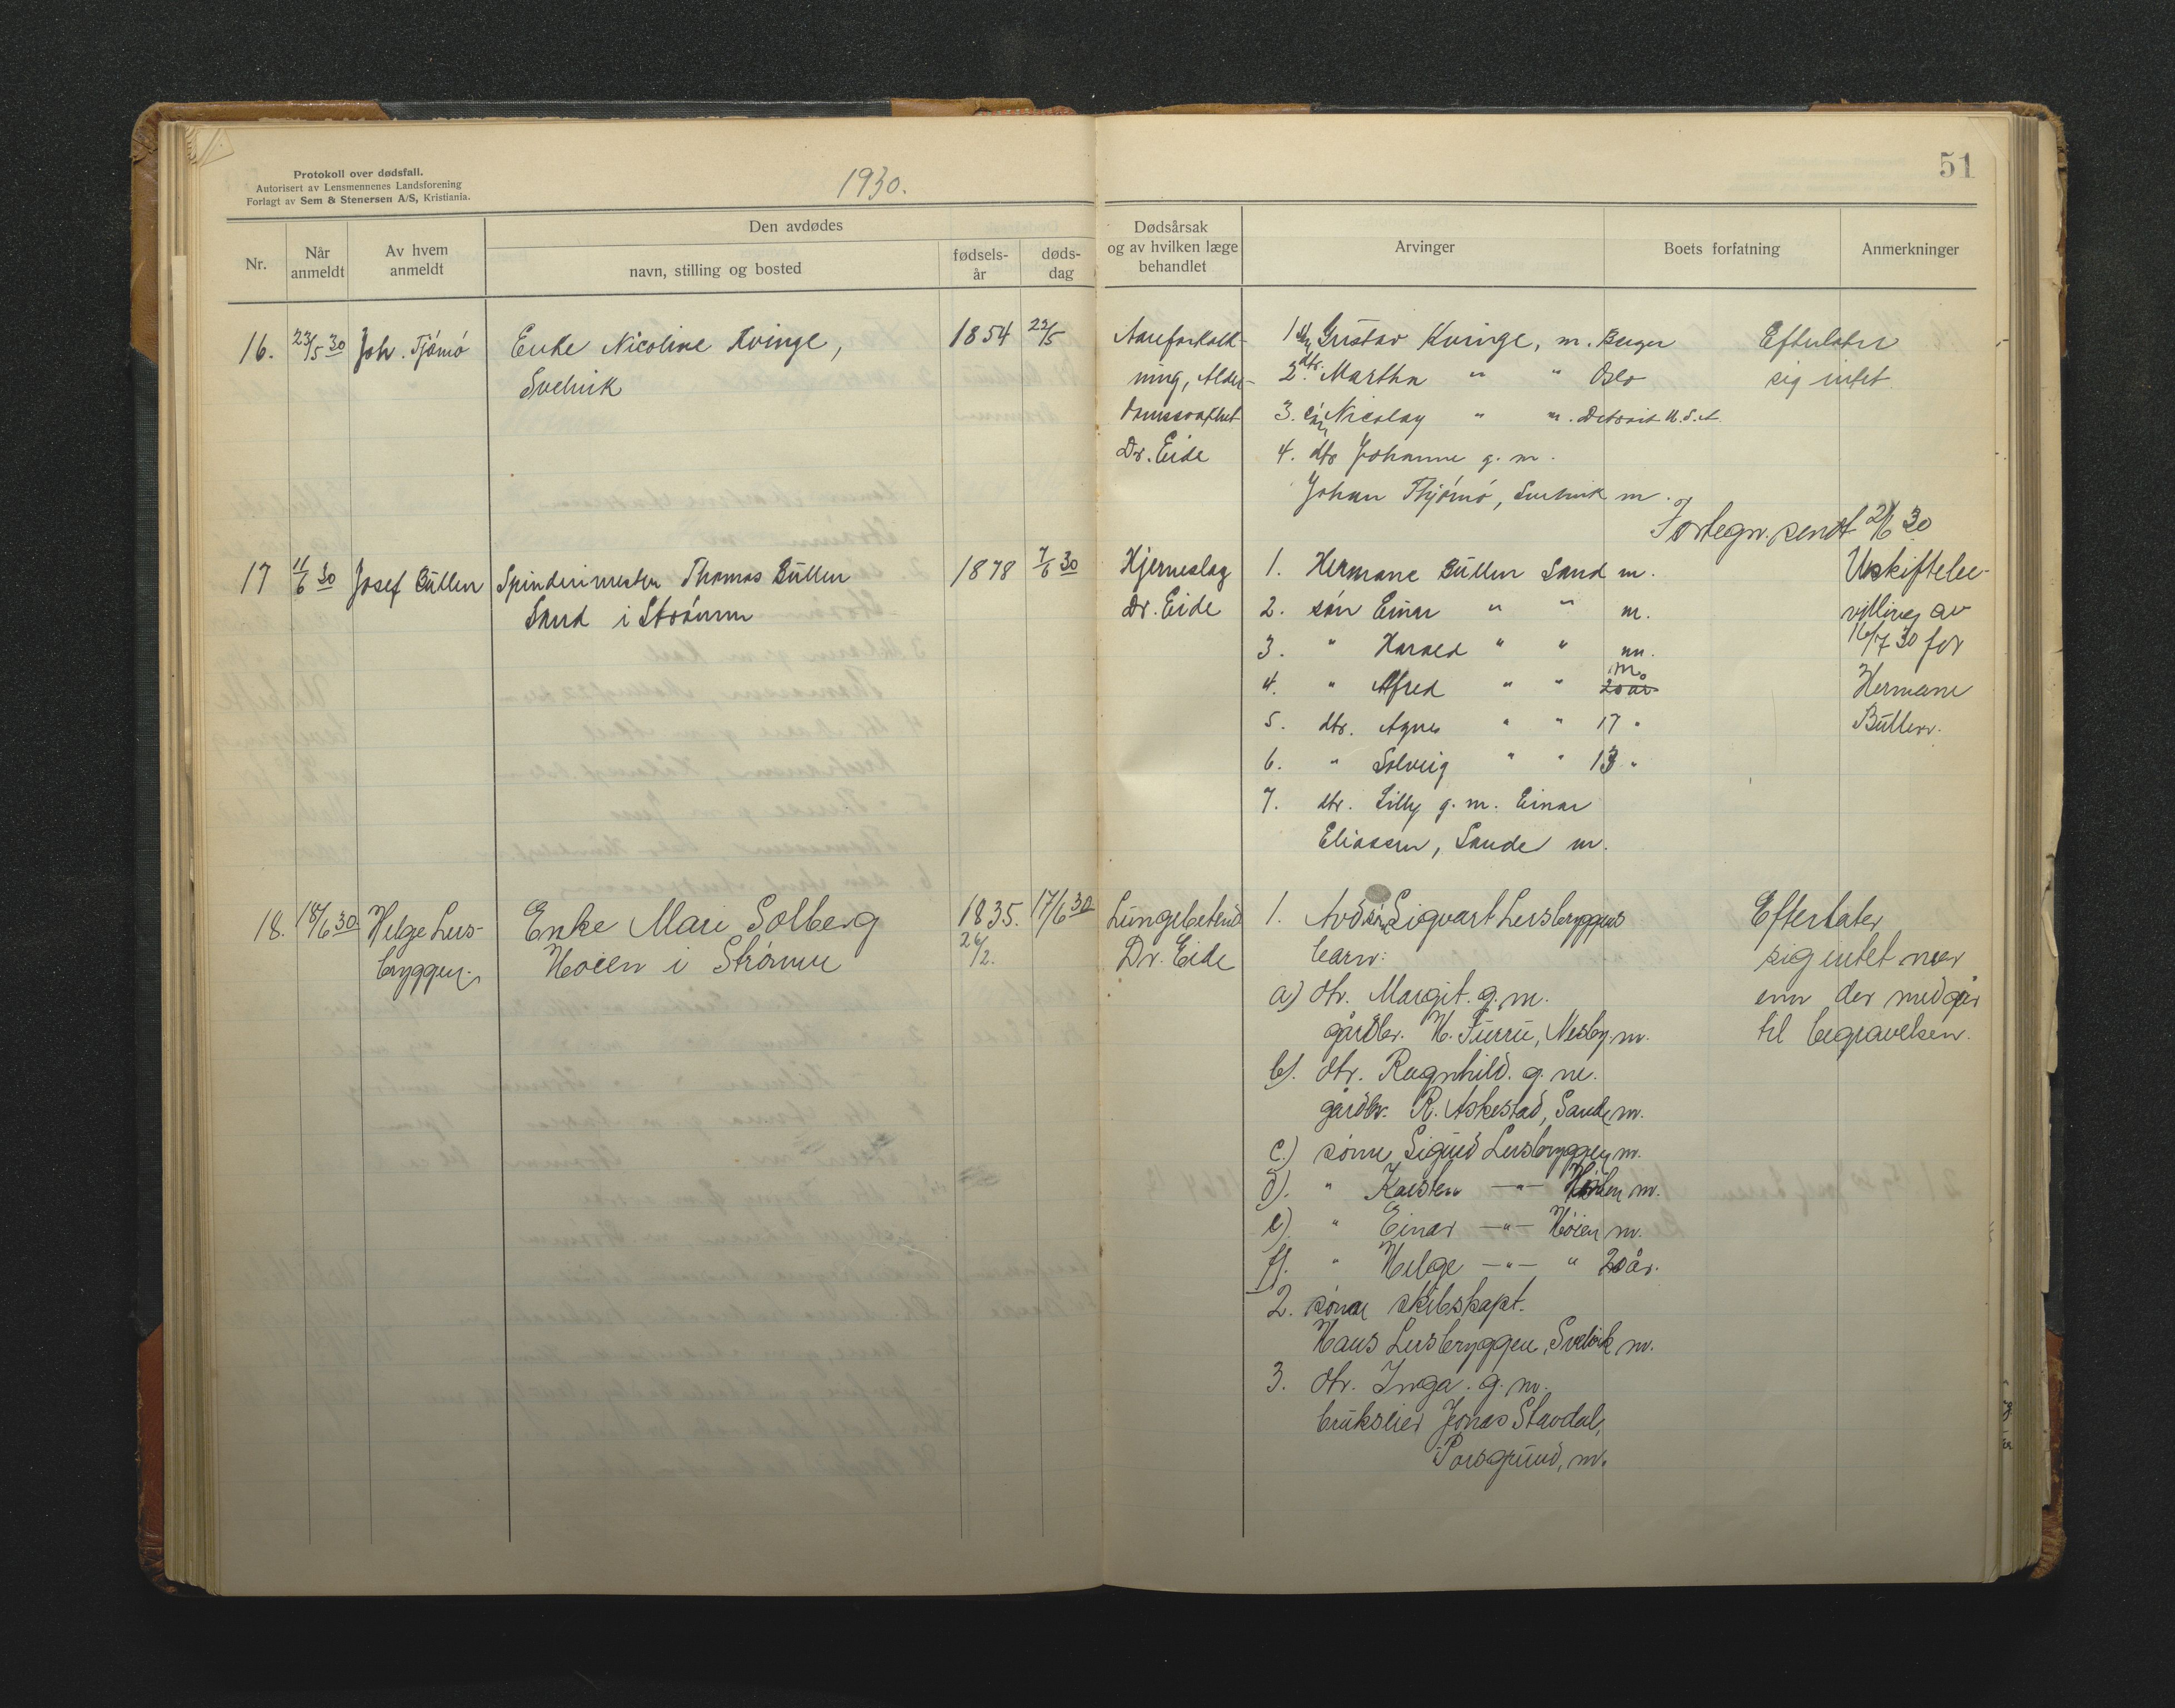 Protokoll over dødsfall.
Autorisert av Lensmennenes Landsforening
Forlagt av Sem & Stenersen A/S, Kristiania.
1930.
51
Nr.
Når anmeldt
Av hvem anmeldt
Den avdødes
navn, stilling og bosted
fødsels-år
døds-dag
Dødsårsak
og av hvilken læge
behandlet
Arvinger
Boets forfatning
Anmerkninger
16. 23/5 30 Joh. Tjömö
Enke Nicoline Kvinge,
Svelvik
1854 22/5
Aareforkalk-
ning, Alder-
domssvakhet
Dr. Eide
1. søn Gustav Kvinge, m. Berger
2. dtr. Martha " " Oslo
3. søn Nicolay " m. Detroit U.S.A
4. dtr Johanne g. m.
Johan Thjömö, Svelvik m.
Efterlater
sig intet
Fortegn. sendt 21/6 30
17 11/6 30 Josef Büllen
Spinderimester Thomas Büllen
Sand i Strömm
1878 7/6 30
Hjerneslag
Dr. Eide
1. Hermane Büllen Sand m.
2. sön Einar " " m.
3. " Harald " " m.
4. " Alfred " " 20 år m.
5. dtr. Agnes " " 17 "
6. " Solveig " " 13 "
7. dtr. Lilly g. m. Einar
Eliassen, Sande m.
Uskiftebe-
villing av
16/7 30 for
Hermane
Büllen.
18. 18/6 30 Helge Lers-
bryggen.
Enke Mari Solberg
Höien i Strömm
1835. 17/6 30
26/2.
Lungebetend
Dr. Eide
1. Avd. sön Sigvart Lersbryggens
barn:
a) dtr. Margit. g. m.
gårdbr. H. Furru, Nesby m.
b). dtr. Ragnhild. g. m.
gårdbr. R. Askestad, Sande m.
c.) sönn Sigurd Lersbryggen m.
d). " Karsten —"— m.
e) " Einar —"— Höien m.
f). " Helge —"— " 20 år.
2. sönn skibskapt.
Hans Lersbryggen, Svelvik m.
3. dtr. Inga. g. m.
brukseier Jonas Stavdal,
Porsgrund, m.
Efterlater
sig intet mer
enn der medgår
til begravelsen.